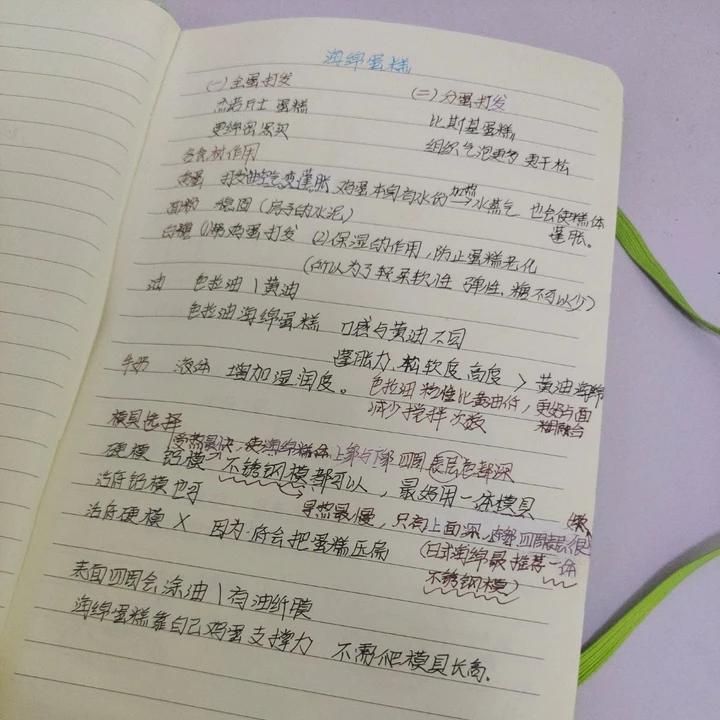 海绵蛋糕
(一) 全蛋打发
(二) 分蛋打发
杰诺瓦士 蛋糕
比斯基蛋糕
更绵密紧实
组织气泡更多 更干松
各食材作用
鸡蛋 打发使空气变蓬胀, 鸡蛋本身有水份 加热→水蒸气 也会使糕体
蓬胀。
面粉 稳固 (房子的水泥)
白糖 (1)帮鸡蛋打发 (2)保湿的作用, 防止蛋糕老化
(所以为了较柔软性 弹性, 糖不可以少)
油 色拉油 \ 黄油
色拉油海绵蛋糕 口感与黄油不同
蓬胀力、松软度、高度 > 黄油海绵
牛奶 液体 增加湿润度。
色拉油 粘性比黄油低, 更好与面糊融合
减少搅拌次数
模具选择
受热最快, 使海绵糕体上部与下部四周表层色都深
硬模 铝模 不锈钢模都可以, 最好用一体模具
活底铝模也可
导热最慢, 只有上面深, 内部四周表层很嫩
活底硬模 × 因为 底会把蛋糕压扁
(日式海绵最推荐一体
不锈钢模)
表面四周会涂油 \ 有油纸膜
海绵蛋糕靠自己鸡蛋支撑力 不需爬模具长高.